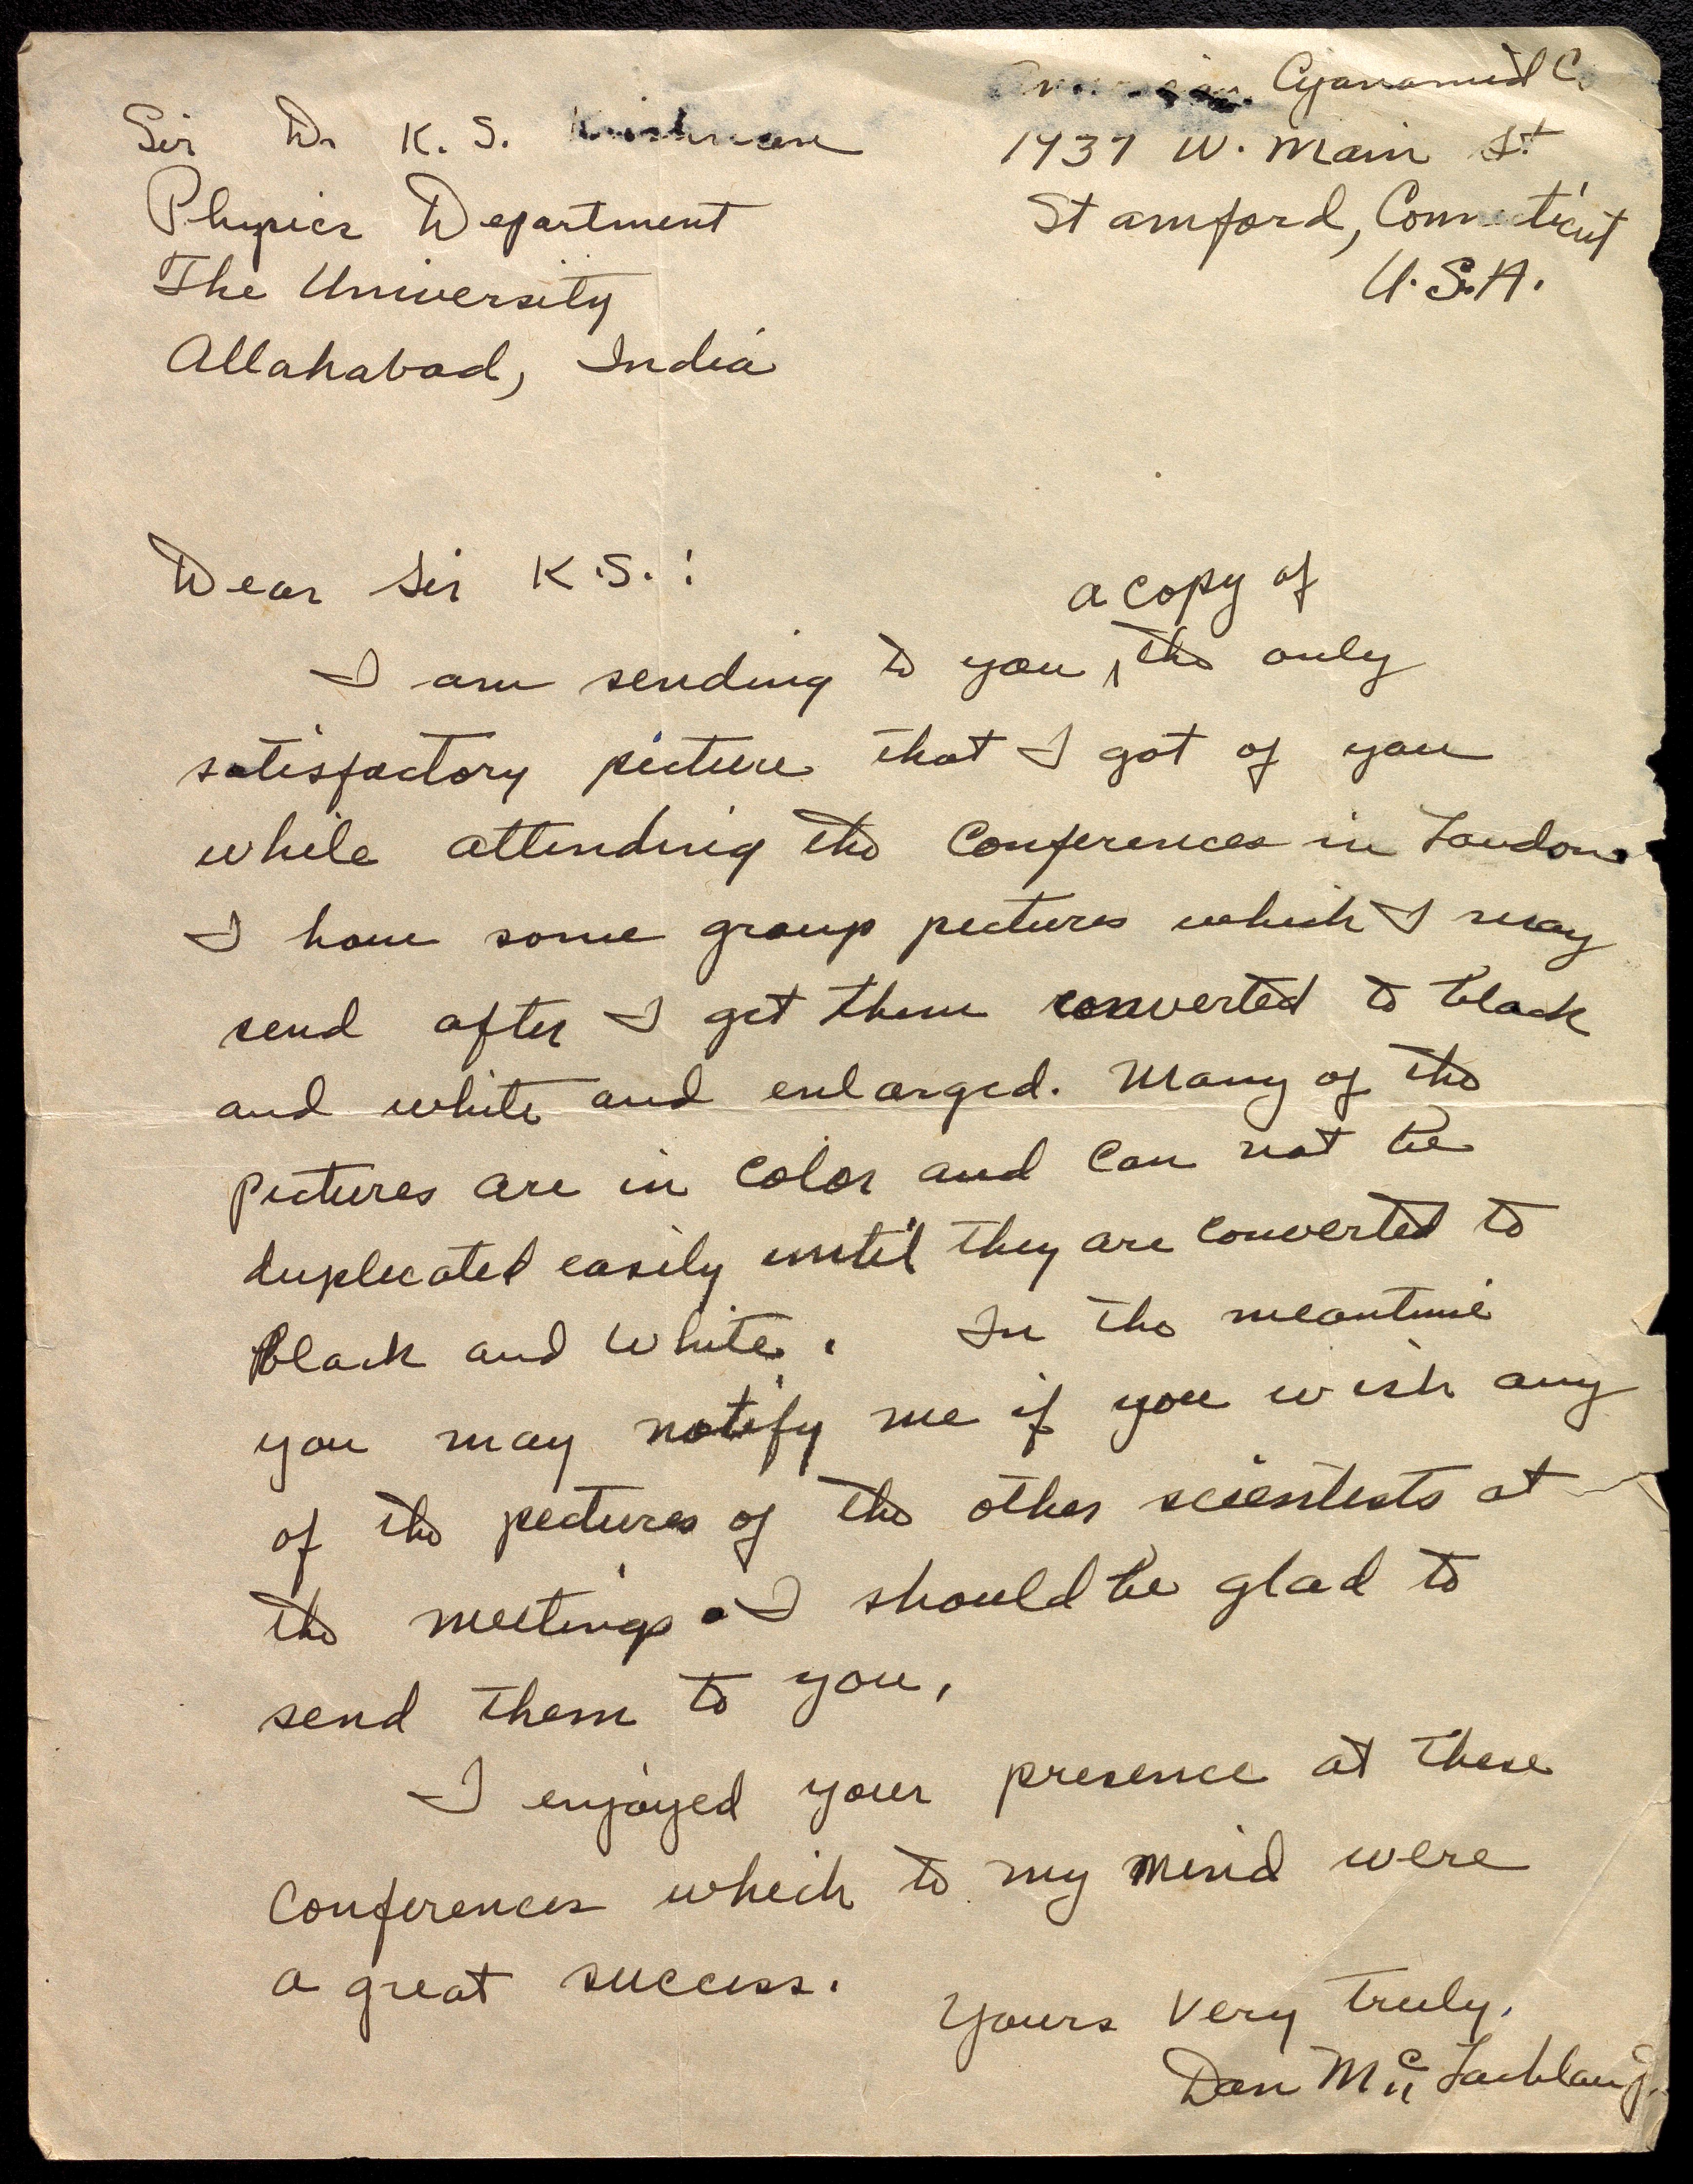 American Cyanamid Co.
1937 W. Main St
Stamford, Connecticut
U.S.A.
Sir Dr K. S. Krishnan
Physics Department
The University
Allahabad, India
Dear Sir K.S.:
a copy of
I am sending to you ^ the only
satisfactory picture that I got of you
while attending the Conferences in London.
I have some group pictures which I may
send after I get them converted to black
and white and enlarged. Many of the
pictures are in color and can not be
duplicated easily until they are converted to
Black and White. In the meantime
you may notify me if you wish any
of the pictures of the other scientists at
the meetings. I should be glad to
send them to you.
I enjoyed your presence at these
Conferences which to my mind were
a great success.
Yours Very truly,
Dan McLachlan Jr.